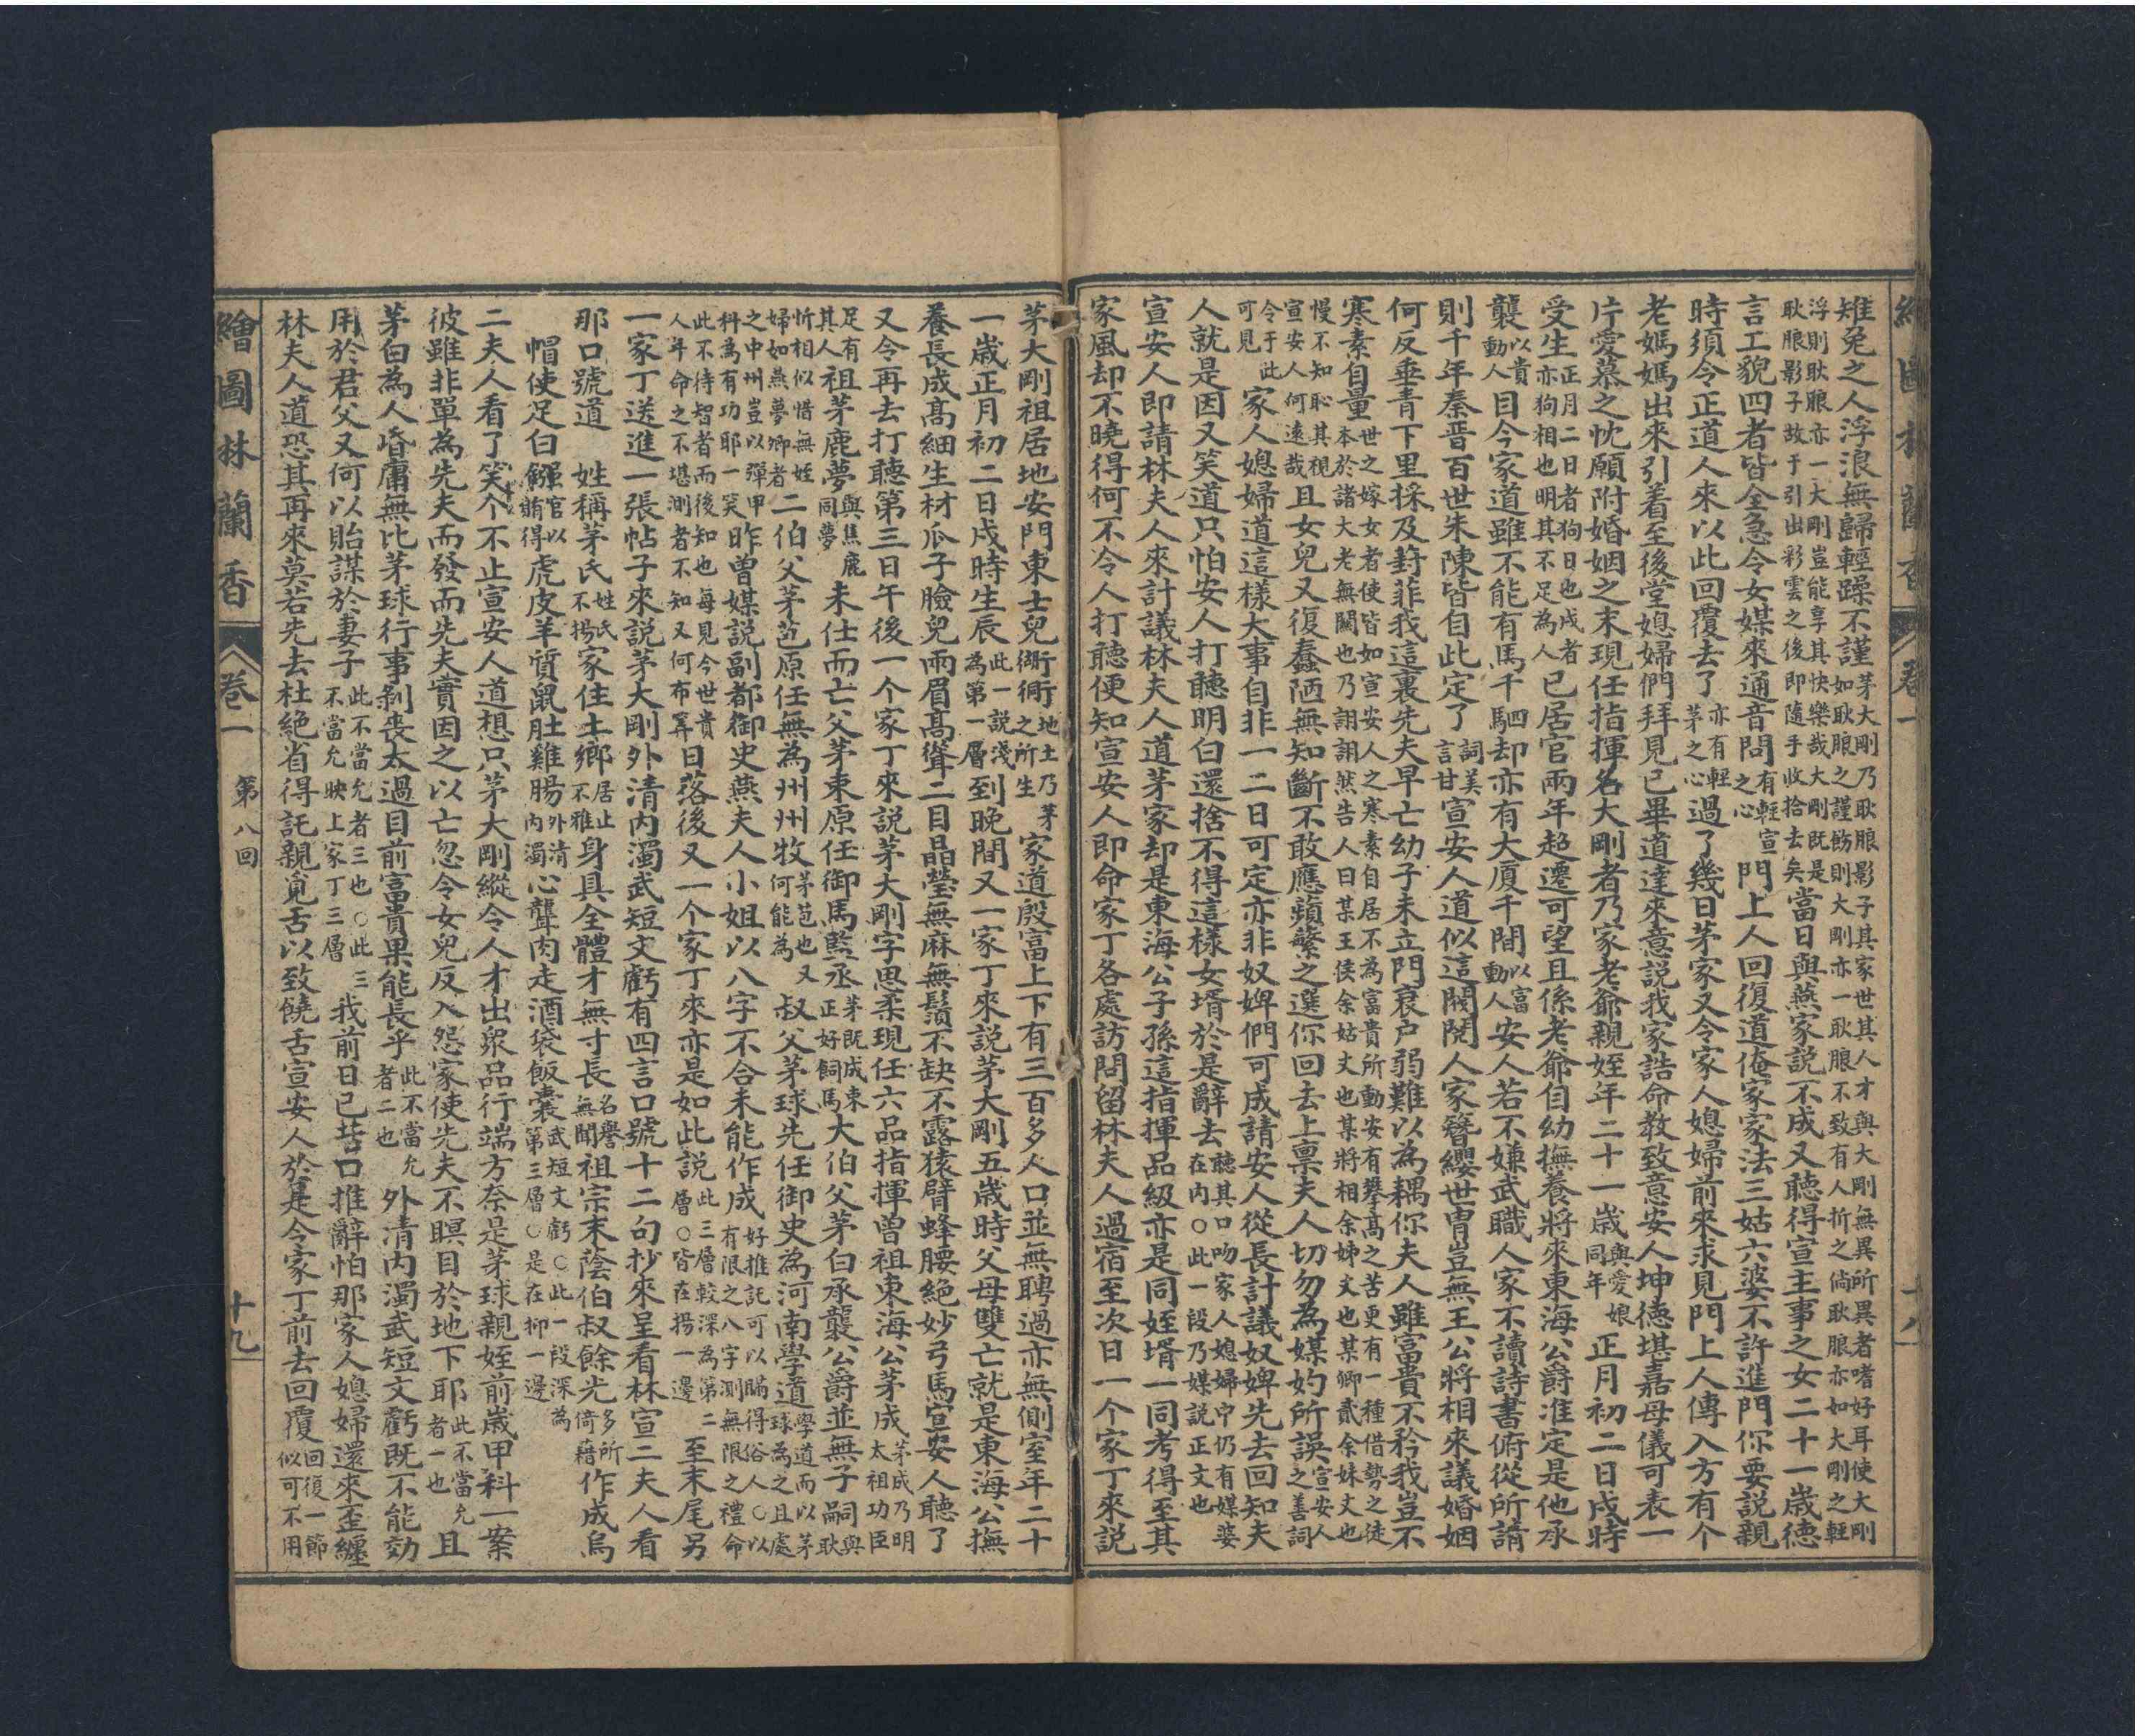 繪圖林蘭香 卷二 十八
雉兔之人浮浪無歸輕躁不謹茅大剛乃耿服影子其家世其人才與大剛無異所異者嗜好耳使大剛如耿服之謹飭則大剛亦一耿服不致有人折之倘耿服亦如大剛之輕
浮則耿服亦一大剛豈能享其快樂哉大剛既是耿服影子故于引出彩雲之後即隨手收拾去矣當日與燕家說不成又聽得宣主事之女二十一歲德
言工貌四者皆全急令女媒來通音問有輕宣之心門上人回復道俺家家法三姑六婆不許進門你要說親
時須令正道人來以此回覆去了亦有輕茅之心過了幾日茅家又令家人媳婦前來求見門上人傳入方有个
老媽媽出來引着至後堂媳婦們拜見已畢道達來意說我家誥命教致意安人坤德堪嘉母儀可表一
片愛慕之忱願附婚姻之末現任指揮名大剛者乃家老爺親姪年二十一歲與愛娘同年正月初二日戌時
受生正月二日者狗日也戌者亦狗相也明其不足為人已居官兩年超遷可望且係老爺自幼撫養將來東海公爵准定是他承
襲以貴動人目今家道雖不能有馬千駟却亦有大廈千間以富動人安人若不嫌武職人家不讀詩書俯從所請
則千年秦晋百世朱陳皆自此定了詞美言甘宣安人道似這閥閱人家簪纓世冑豈無王公將相來議婚姻
何反垂青下里採及葑菲我這裏先夫早亡幼子未立門衰户弱難以為耦你夫人雖富貴不矜我豈不
寒素自量世之嫁女者使皆如宣安人之寒素自居不為富貴所動安有攀高之苦更有一種借勢之徒本於諸大老無關也乃詡詡然告人曰某王侯余姑丈也某將相余姊丈也某卿貳余妹丈也
慢不知恥其視宣安人何遠哉且女兒又復蠢陋無知斷不敢應蘋蘩之選你回去上禀夫人切勿為媒妁所誤宣安人之善詞
令于此可見家人媳婦道這樣大事自非一二日可定亦非奴婢們可成請安人從長計議奴婢先去回知夫
人就是因又笑道只怕安人打聽明白還捨不得這樣女壻於是辭去聽其口吻家人媳婦中仍有媒婆在內○此一段乃媒說正文也
宣安人即請林夫人來計議林夫人道茅家却是東海公子孫這指揮品級亦是同姪壻一同考得至其
家風却不曉得何不令人打聽便知宣安人即命家丁各處訪問留林夫人過宿至次日一个家丁來說
茅大剛祖居地安門東士兒衚衕地土乃茅之所生家道殷富上下有三百多人口並無聘過亦無側室年二十
一歲正月初二日戌時生辰此一說淺為第一層到晚間又一家丁來說茅大剛五歲時父母雙亡就是東海公撫
養長成高細生材瓜子臉兒兩眉高聳二目晶瑩無麻無鬚不缺不露猿臂蜂腰絕妙弓馬宣安人聽了
又令再去打聽第三日午後一个家丁來說茅大剛字思柔現任六品指揮曾祖東海公茅成茅成乃明太祖功臣
足有其人祖茅鹿夢與焦鹿同夢未仕而亡父茅束原任御馬監丞茅既成束正好飼馬大伯父茅白承襲公爵並無子嗣與耿
忻相似惜無姪婦如燕夢卿者二伯父茅苞原任無為州州牧茅苞也又何能為叔父茅球先任御史為河南學道學道而以茅球為之且處
之中州豈以彈甲科為有功耶一笑昨曾媒說副都御史燕夫人小姐以八字不合未能作成好推託可以瞞得俗人○以有限之八字測無限之禮命
此不待智者而後知也每見今世貴人年命之不堪測者不知又何布算日落後又一个家丁來亦是如此說此三層較深為第二層○皆在揚一邊至末尾另
一家丁送進一張帖子來說茅大剛外清內濁武短文虧有四言口號十二句抄來呈看林宣二夫人看
那口號道 姓稱茅氏姓氏不揚家住土鄉居止不雅身具全體才無寸長名譽無聞祖宗末蔭伯叔餘光多所倚藉作成烏
帽使足白鏹官以賄得虎皮羊質鼠肚雞腸外清內濁心聾肉走酒袋飯囊武短文虧○此一段深為第三層○是在抑一邊
二夫人看了笑个不止宣安人道想只茅大剛縱令人才出眾品行端方奈是茅球親姪前歲甲科一案
彼雖非單為先夫而發而先夫實因之以亡忽令女兒反入怨家使先夫不瞑目於地下耶此不當允者一也且
茅白為人昏庸無比茅球行事剝喪太過目前富貴果能長乎此不當允者二也外清內濁武短文虧既不能効
用於君父又何以貽謀於妻子此不當允者三也○此三不當允映上家丁三層我前日已苦口推辭怕那家人媳婦還來歪纏
林夫人道恐其再來莫若先去杜絕省得託親覓舌以致饒舌宣安人於是令家丁前去回覆回復一節似可不用
繪圖林蘭香 卷二 第八回 十九